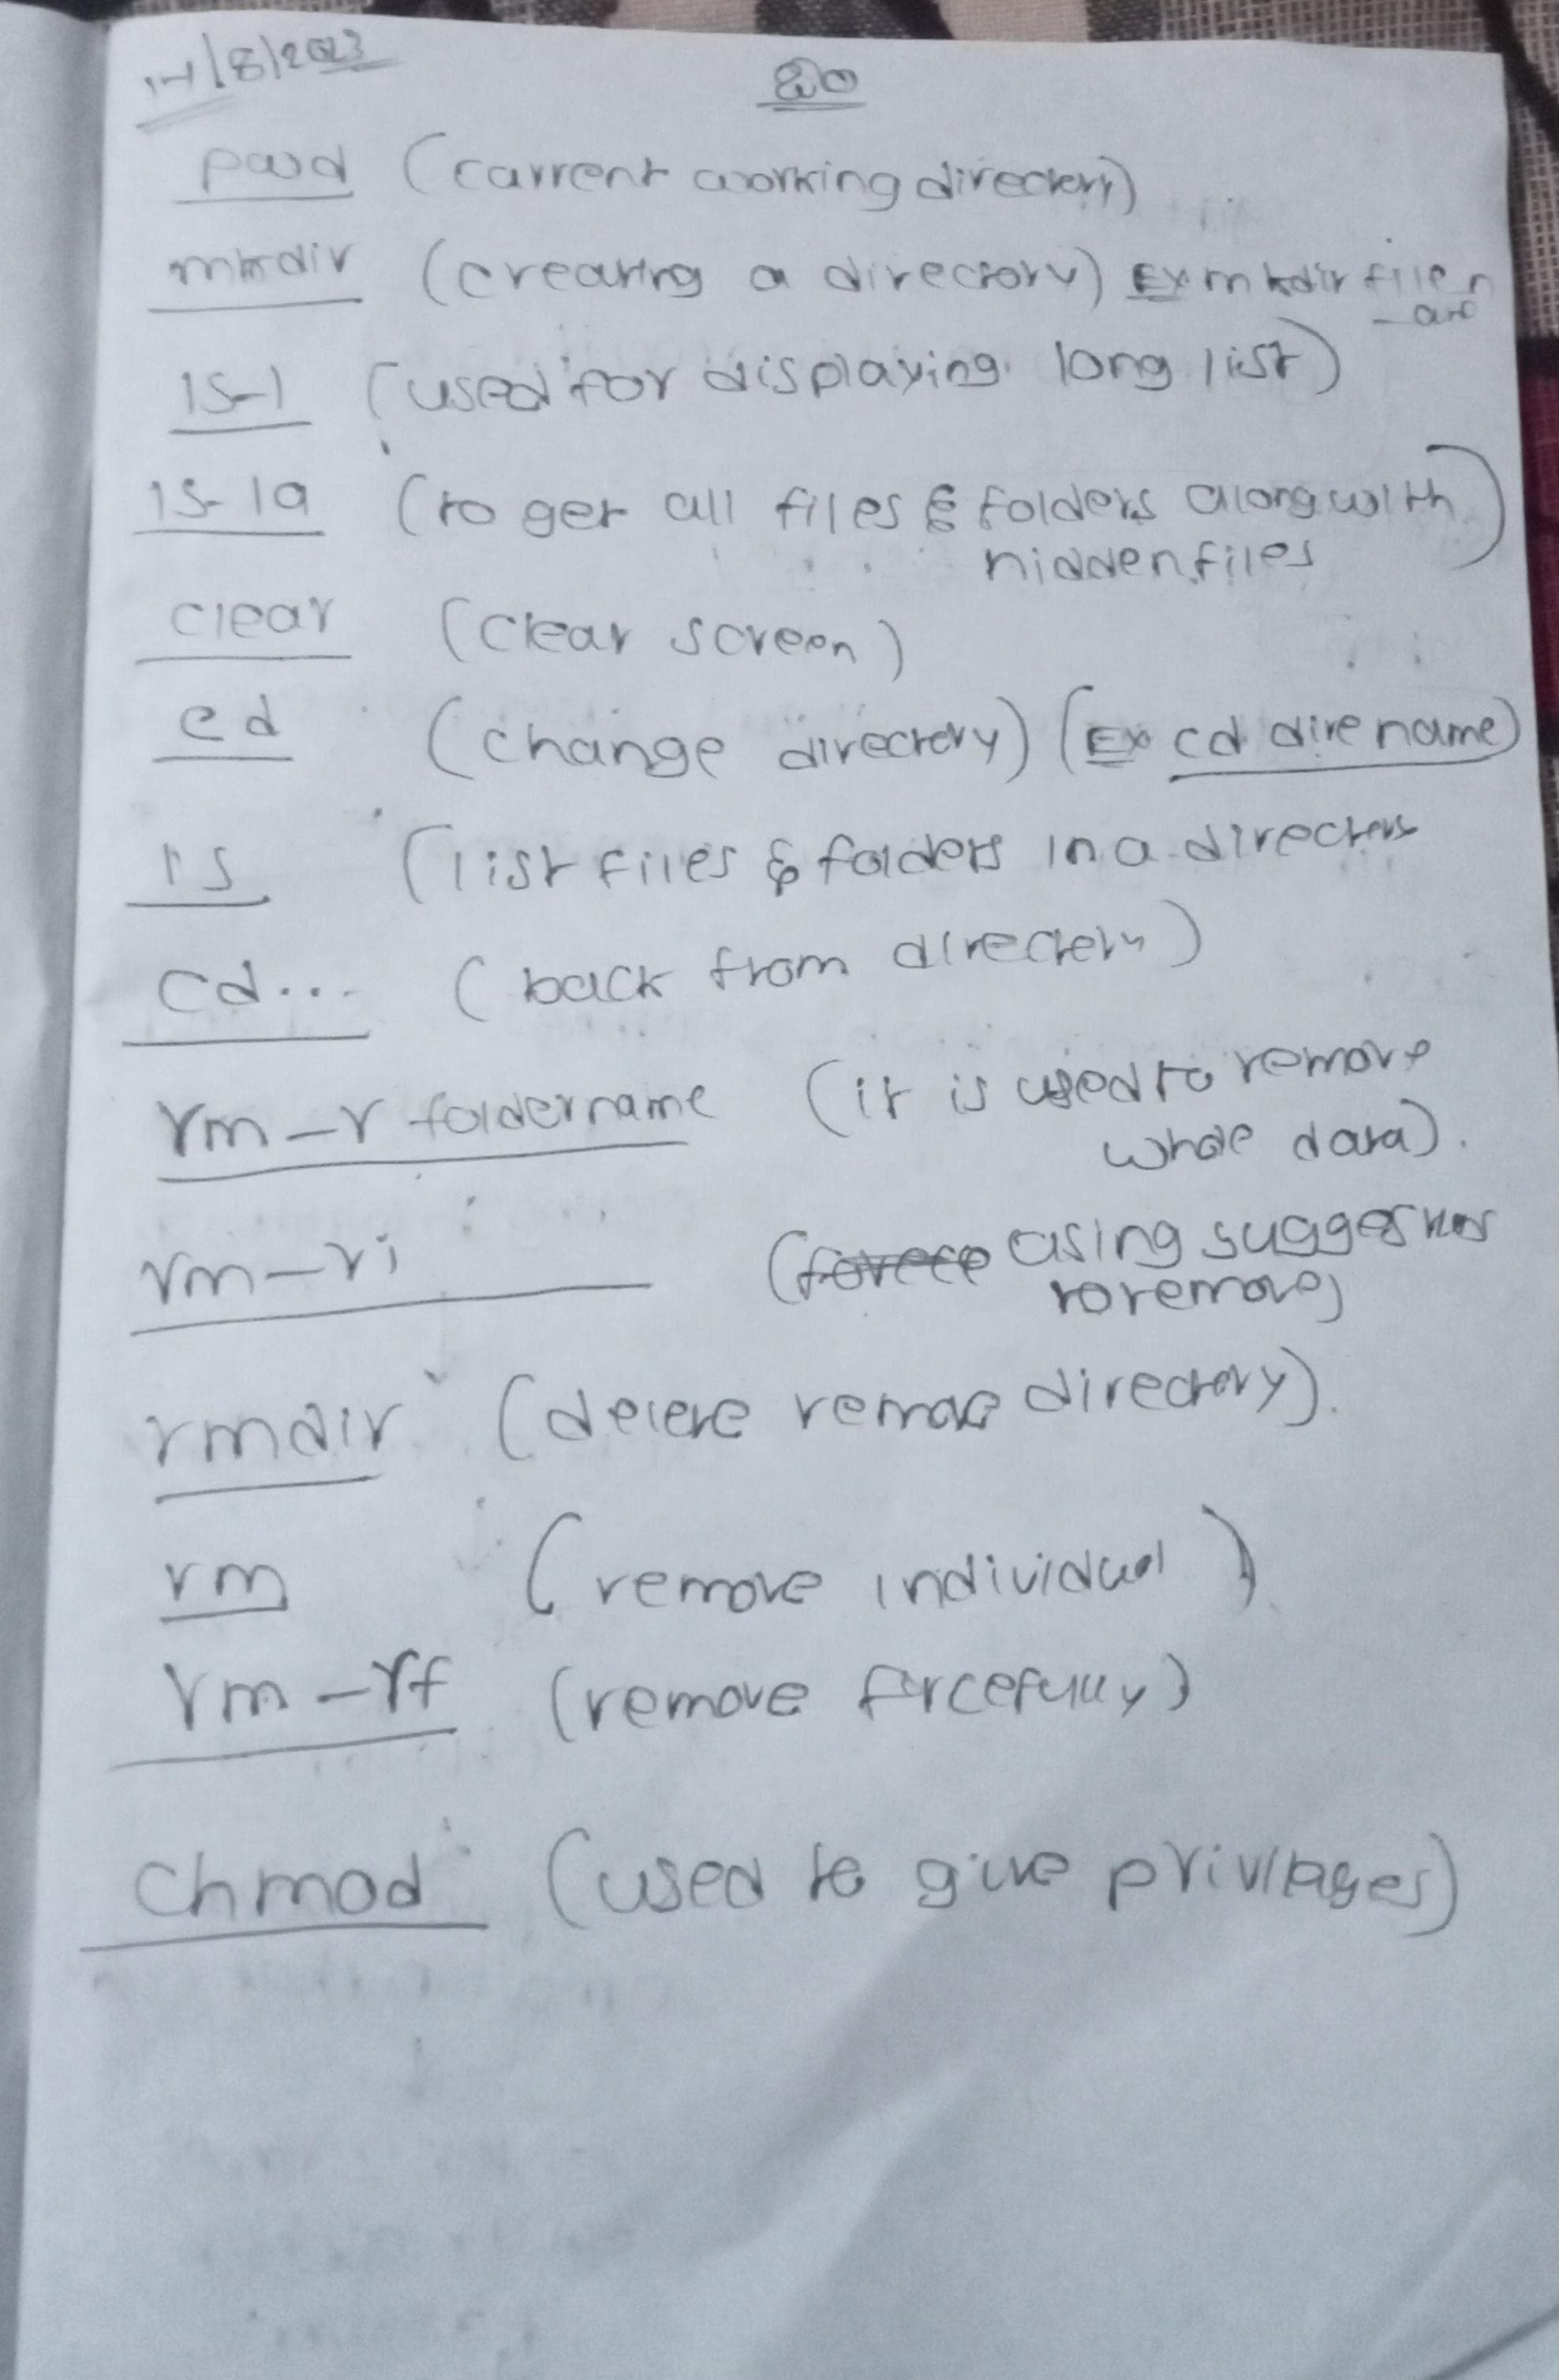 14/8/2023
ఓం
pwd (current working directory)
mkdir (creating a directory) Ex mkdir filen
ame
ls-l (used for displaying long list)
ls-la (to get all files & folders along with
hidden files)
clear (clear screen)
cd (change directory) (Ex cd dire name)
ls (list files & folders in a directory
cd... (back from directory)
rm-r foldername (it is used to remove
whole data).
rm-ri (using suggestions
to remove)
rmdir (delete remove directory).
rm (remove individual)
rm-rf (remove forcefully)
chmod (used to give privilages)